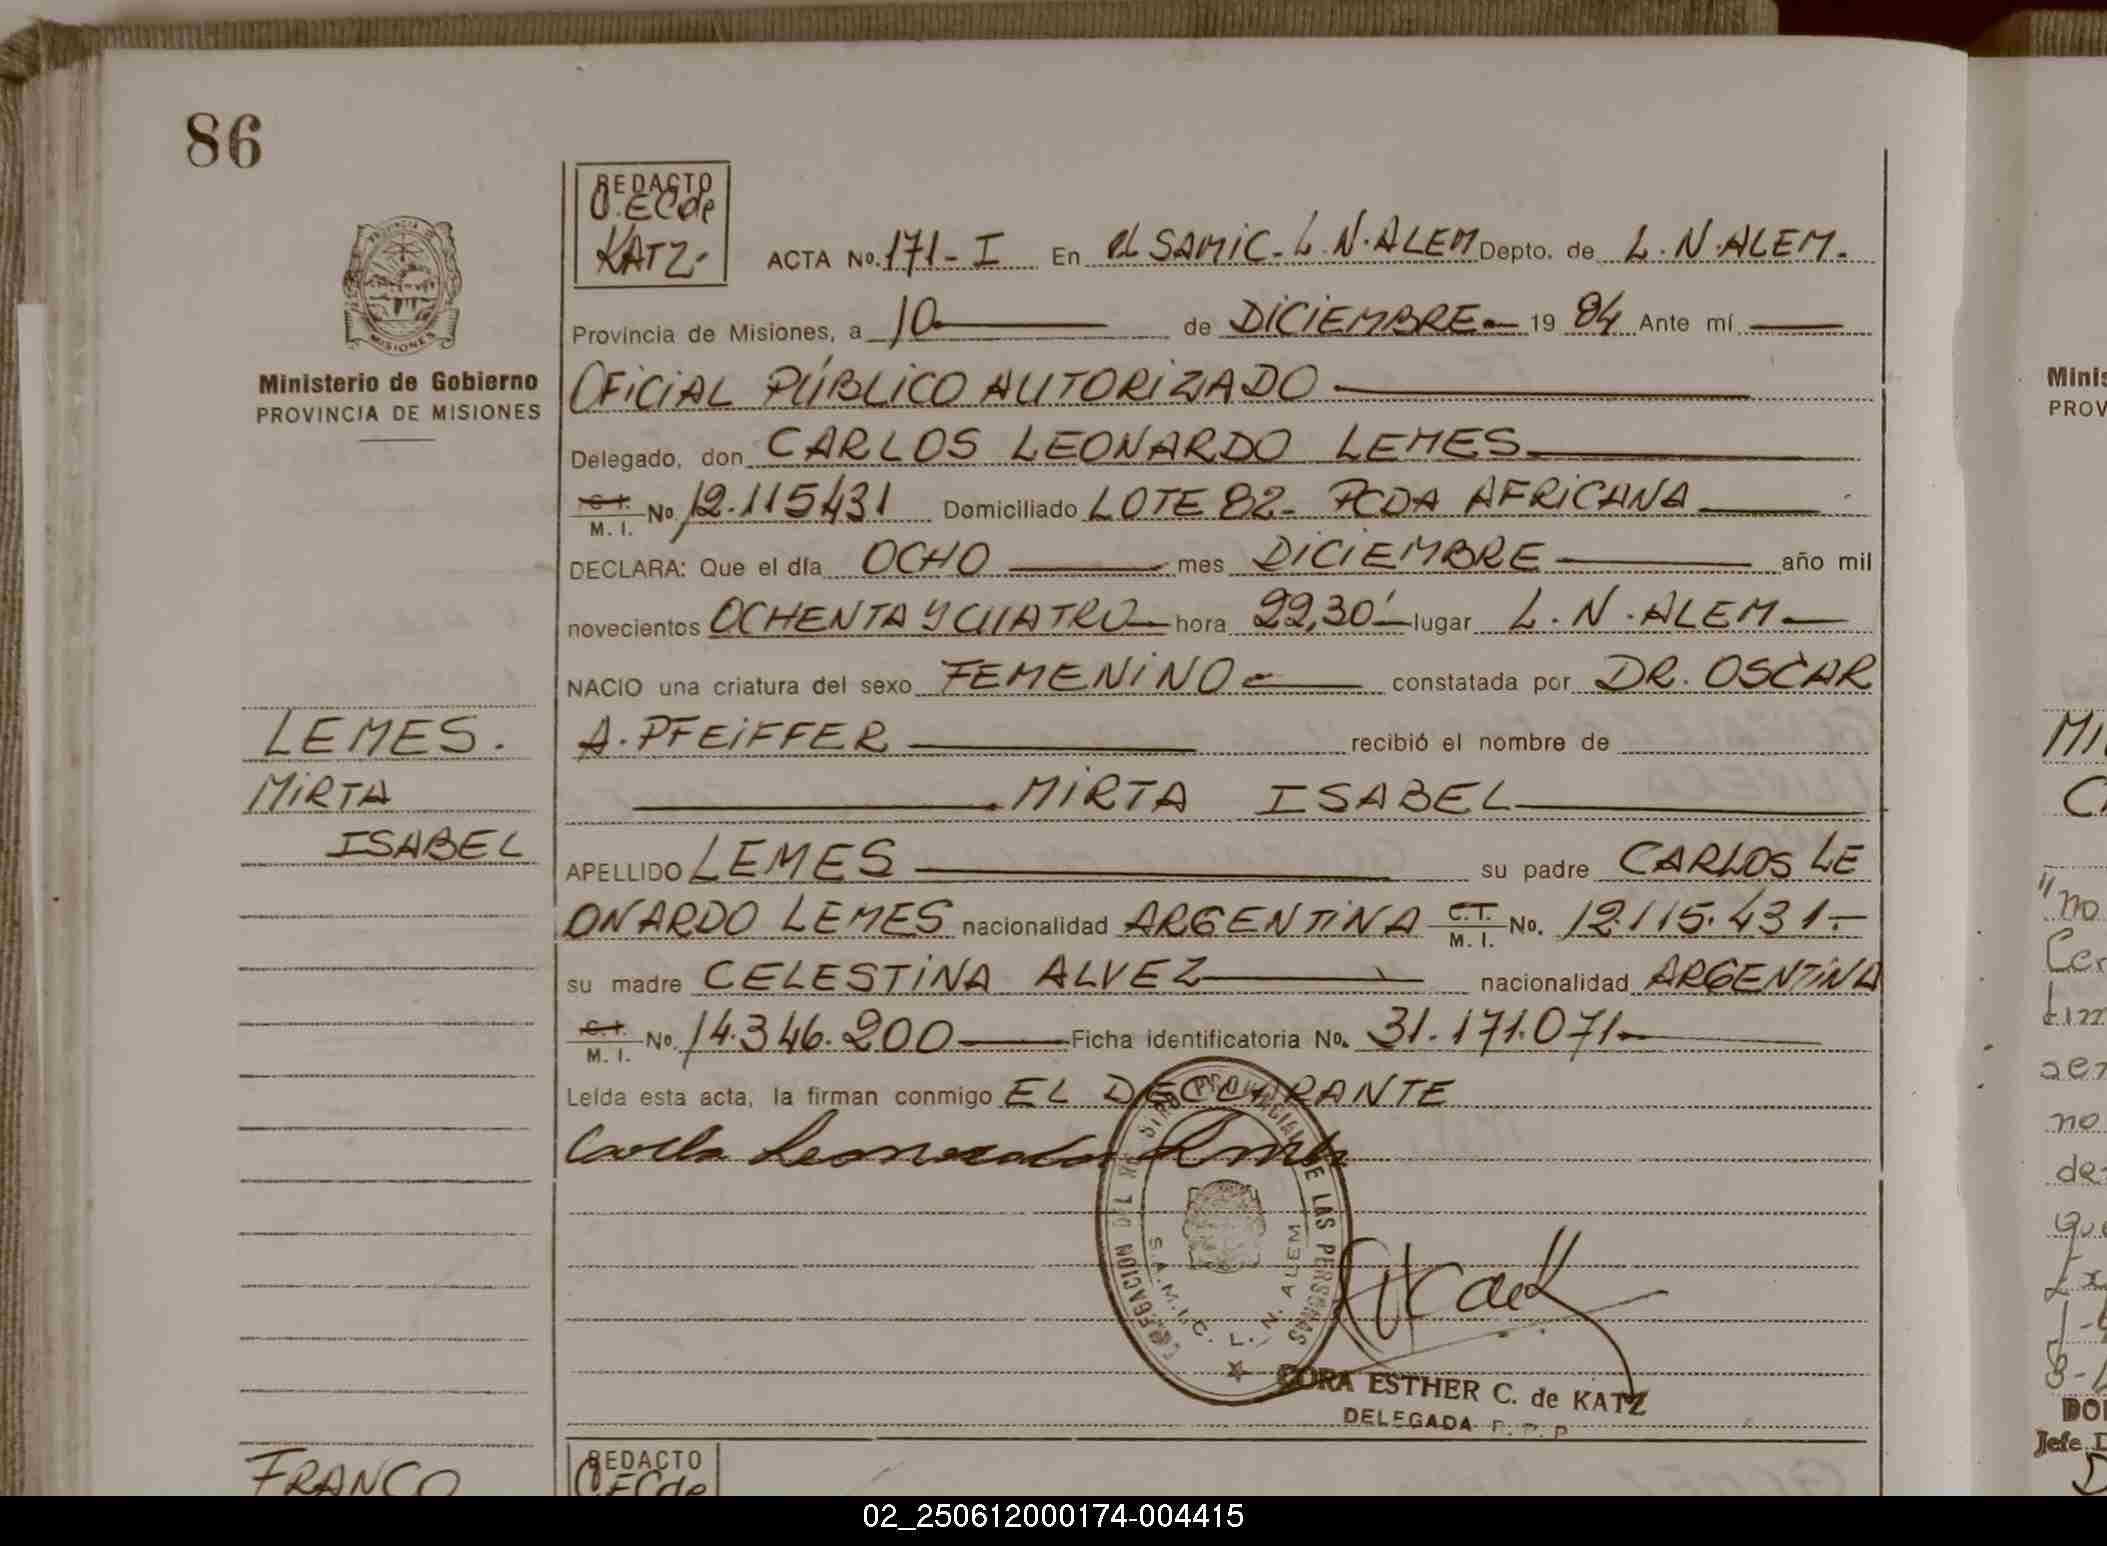 86
REDACTO
C.EC de
KATZ-
ACTA No. 171-I En el SAMIC. L.N.ALEM Depto. de L.N.ALEM.
Provincia de Misiones, a 10 de DICIEMBRE 19 84 Ante mí
Ministerio de Gobierno
PROVINCIA DE MISIONES
OFICIAL PÚBLICO AUTORIZADO
Delegado, don CARLOS LEONARDO LEMES
C.I. M. I. No. 12.115431 Domiciliado LOTE 82- PCDA AFRICANA
DECLARA: Que el día OCHO mes DICIEMBRE año mil
novecientos OCHENTA Y CUATRO hora 22,30' lugar L.N.ALEM
NACIO una criatura del sexo FEMENINO constatada por DR. OSCAR
A. PFEIFFER recibió el nombre de
MIRTA ISABEL
LEMES.
MIRTA
ISABEL
APELLIDO LEMES su padre CARLOS LE
ONARDO LEMES nacionalidad ARGENTINA C.I. M. I. No. 12.115.431.-
su madre CELESTINA ALVEZ nacionalidad ARGENTINA
C.I. M. I. No. 14.346.200 Ficha identificatoria No. 31.171.071
Leída esta acta, la firman conmigo EL DECLARANTE
Carlos Leonardo Lemes
DELEGACION DEL REGISTRO PROVINCIAL DE LAS PERSONAS
S.A.M.I.C. L. N. ALEM
CORA ESTHER C. de KATZ
DELEGADA R. P. P
FRANCO
REDACTO
C.EC de
Minis
PROV
MI
C
"no
Cer
ser
no
de
que
DO
Jefe D
02_250612000174-004415